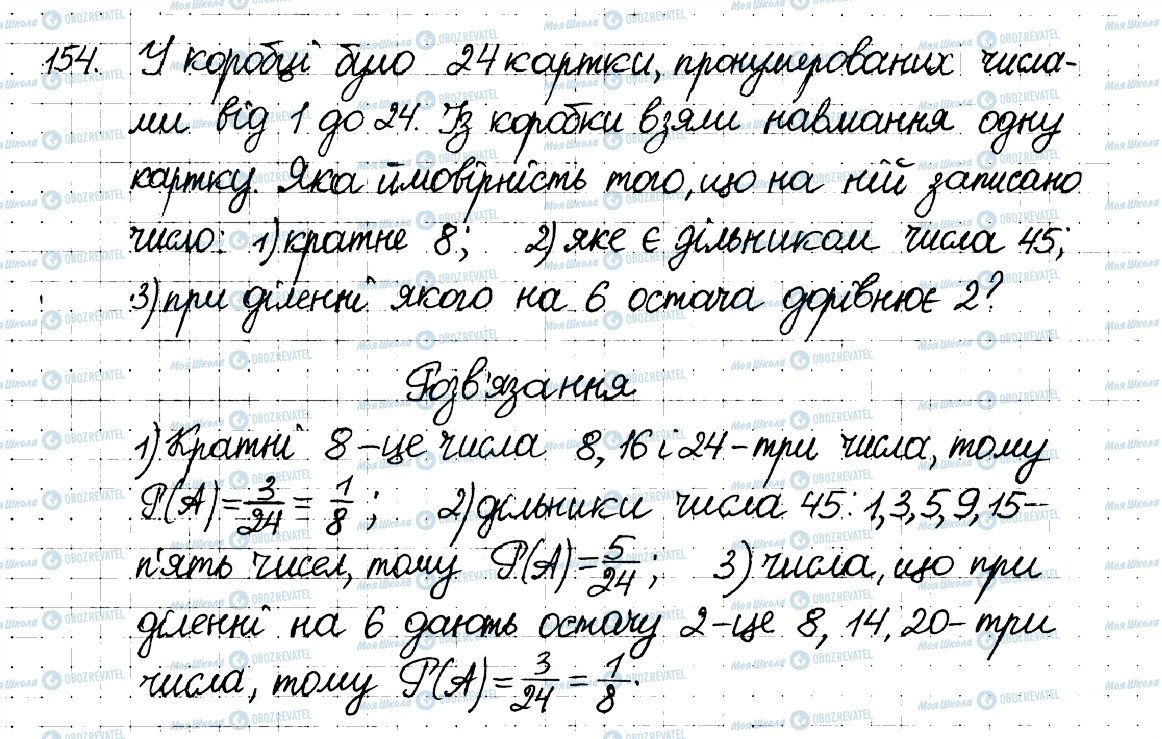 154. У коробці було 24 картки, пронумерованих числа-
ми від 1 до 24. Із коробки взяли навмання одну
картку. Яка ймовірність того, що на ній записано
число: 1) кратне 8; 2) яке є дільником числа 45;
3) при діленні якого на 6 остача дорівнює 2?
Розв'язання
1) Кратні 8 – це числа 8, 16 і 24 – три числа, тому
P(A) = 3/24 = 1/8; 2) дільники числа 45: 1, 3, 5, 9, 15 –
п'ять чисел, тому P(A) = 5/24; 3) числа, що при
діленні на 6 дають остачу 2 – це 8, 14, 20 – три
числа, тому P(A) = 3/24 = 1/8.